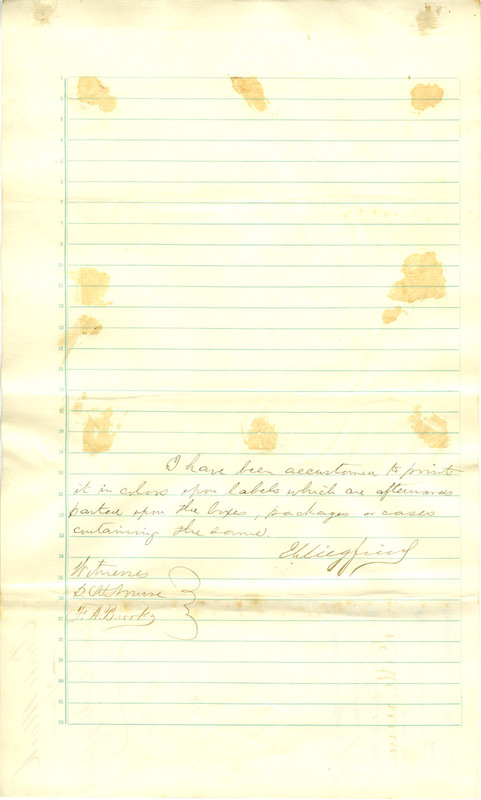 I have been accustomed to print
it in colors upon labels which are afterwards
pasted upon the boxes, packages or cases
containing the same.
Witnesses
F. A. Brooks